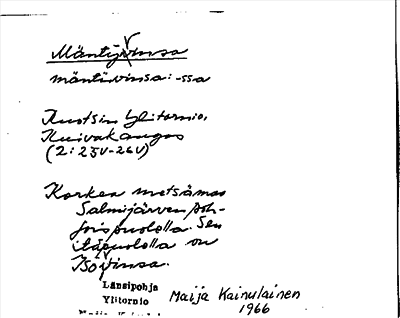 Mäntyvinsa
mäntivinsa: -ssa
Ruotsin Ylitornio,
Kuivakangas
(2:25V-26V)
Korkea metsämaa
Salmijärven poh-
joispuolella. Sen
itäpuolella on
Isovinsa.
Länsipohja
Ylitornio
Maija Kainulainen
1966